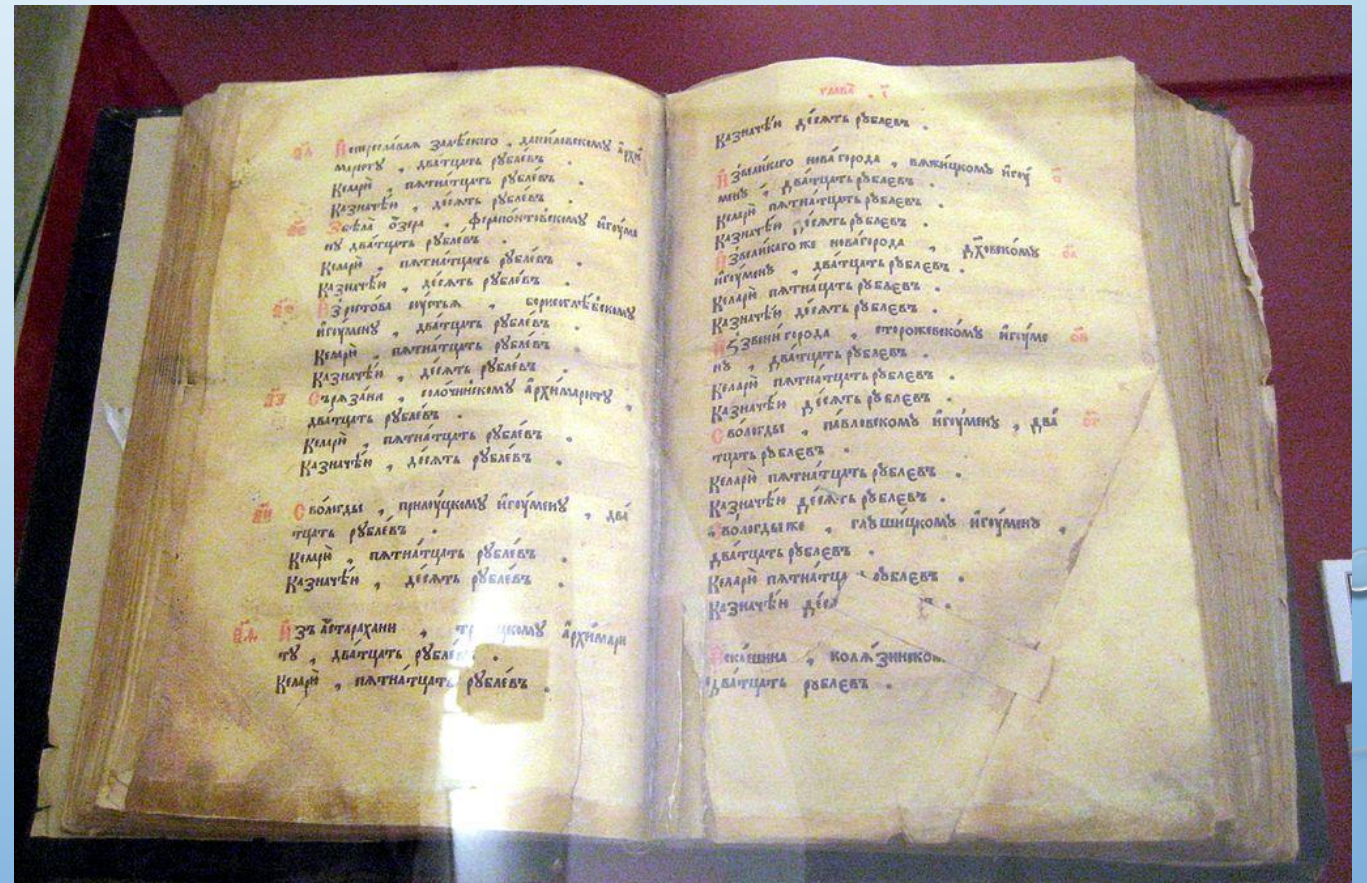 Испереславля залѣскаго , даниловскомꙋ архи
мариту , дватцать рꙋблевъ .
Келарю , пятнатцать рꙋблевъ .
Казначѣю , десять рꙋблевъ .
Збѣла озера , ферапонтовскомꙋ игоумѣ
ну дватцать рꙋблевъ .
Келарю , пятнатцать рꙋблевъ .
Казначѣю , десять рꙋблевъ .
Изростова сꙋстья , борисоглѣбскомꙋ
игоумену , дватцать рꙋблевъ .
Келарю , пятнатцать рꙋблевъ .
Казначѣю , десять рꙋблевъ .
Сърязани , солочинскомꙋ архимариту ,
дватцать рꙋблевъ .
Келарю , пятнатцать рꙋблевъ .
Казначѣю , десять рꙋблевъ .
Свологды , прилоуцкомꙋ игоуменꙋ , два
тцать рꙋблевъ .
Келарю , пятнатцать рꙋблевъ .
Казначѣю , десять рꙋблевъ .
Изъ астарахани , архимари
тꙋ , дватцать
Келарю , пятнатцать рꙋблевъ .
глава , ї
Казначѣю десять рꙋблевъ .
Извеликаго нова города , вяжицкомꙋ игоу
менꙋ , дватцать рꙋблевъ .
Келарю пятнатцать рꙋблевъ .
Казначѣю десять рꙋблевъ .
Извеликаго же новагорода , дх҃овскомꙋ
игоумену , дватцать рꙋблевъ .
Келарю пятнатцать рꙋблевъ .
Казначѣю десять рꙋблевъ .
Изъзвени города , сторожевскомꙋ игоуме
ну , дватцать рꙋблевъ .
Келарю пятнатцать рꙋблевъ .
Казначѣю десять рꙋблевъ .
Свологды , павловскомꙋ игоуменꙋ , два
тцать рꙋблевъ .
Келарю пятнатцать рꙋблевъ .
Казначѣю десять рꙋблевъ .
Свологды же , глꙋшицкомꙋ игоуменꙋ ,
дватцать рꙋблевъ .
Келарю
Казначѣю
Искашина ,
дватцать рꙋблевъ .